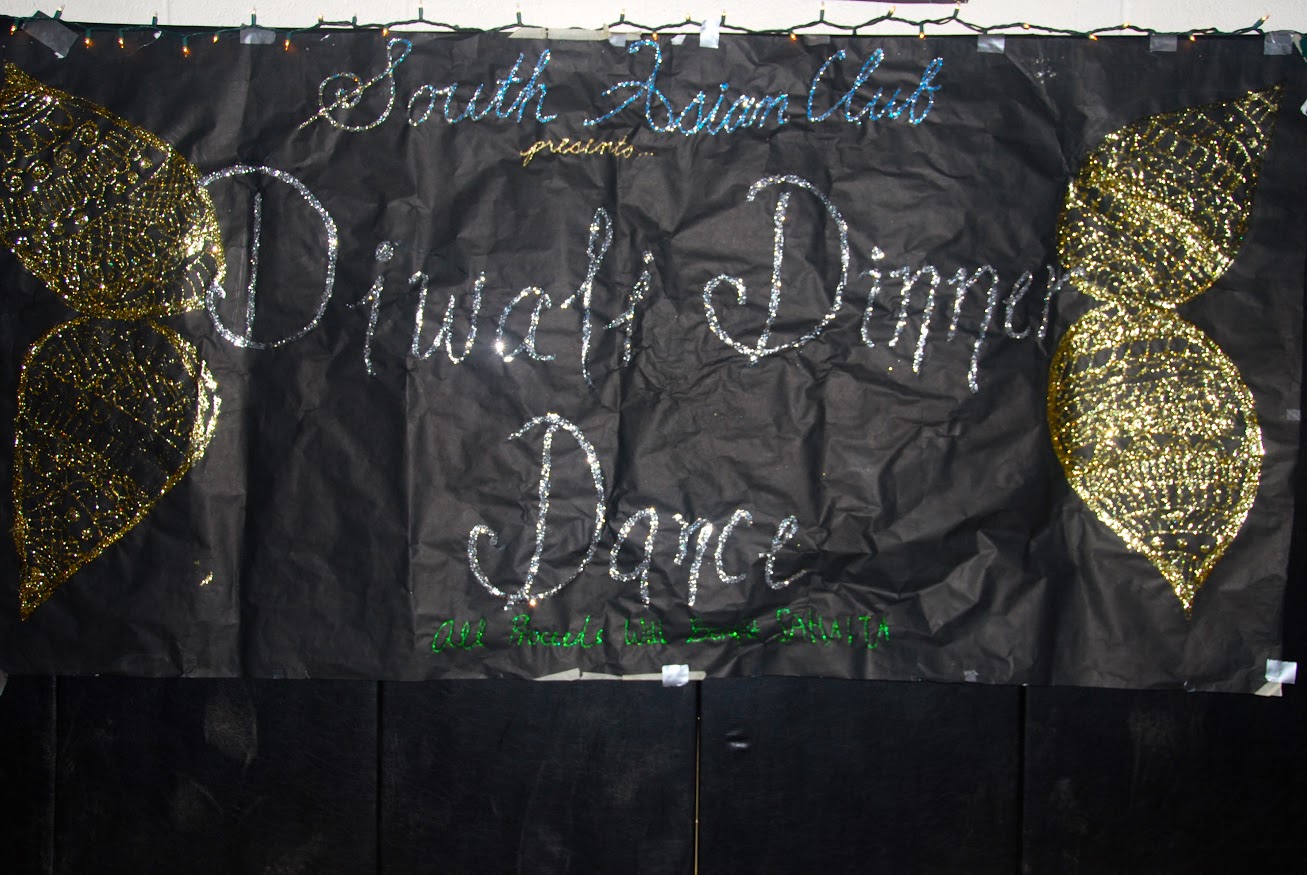 South Asian Club
presents...
Diwali Dinner
Dance
All Proceeds Will Benefit SAHAITA